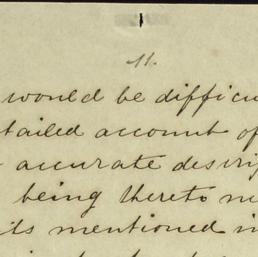 11.
would be difficu
tailed account of
accurate descrip
being thereto
its mentioned in